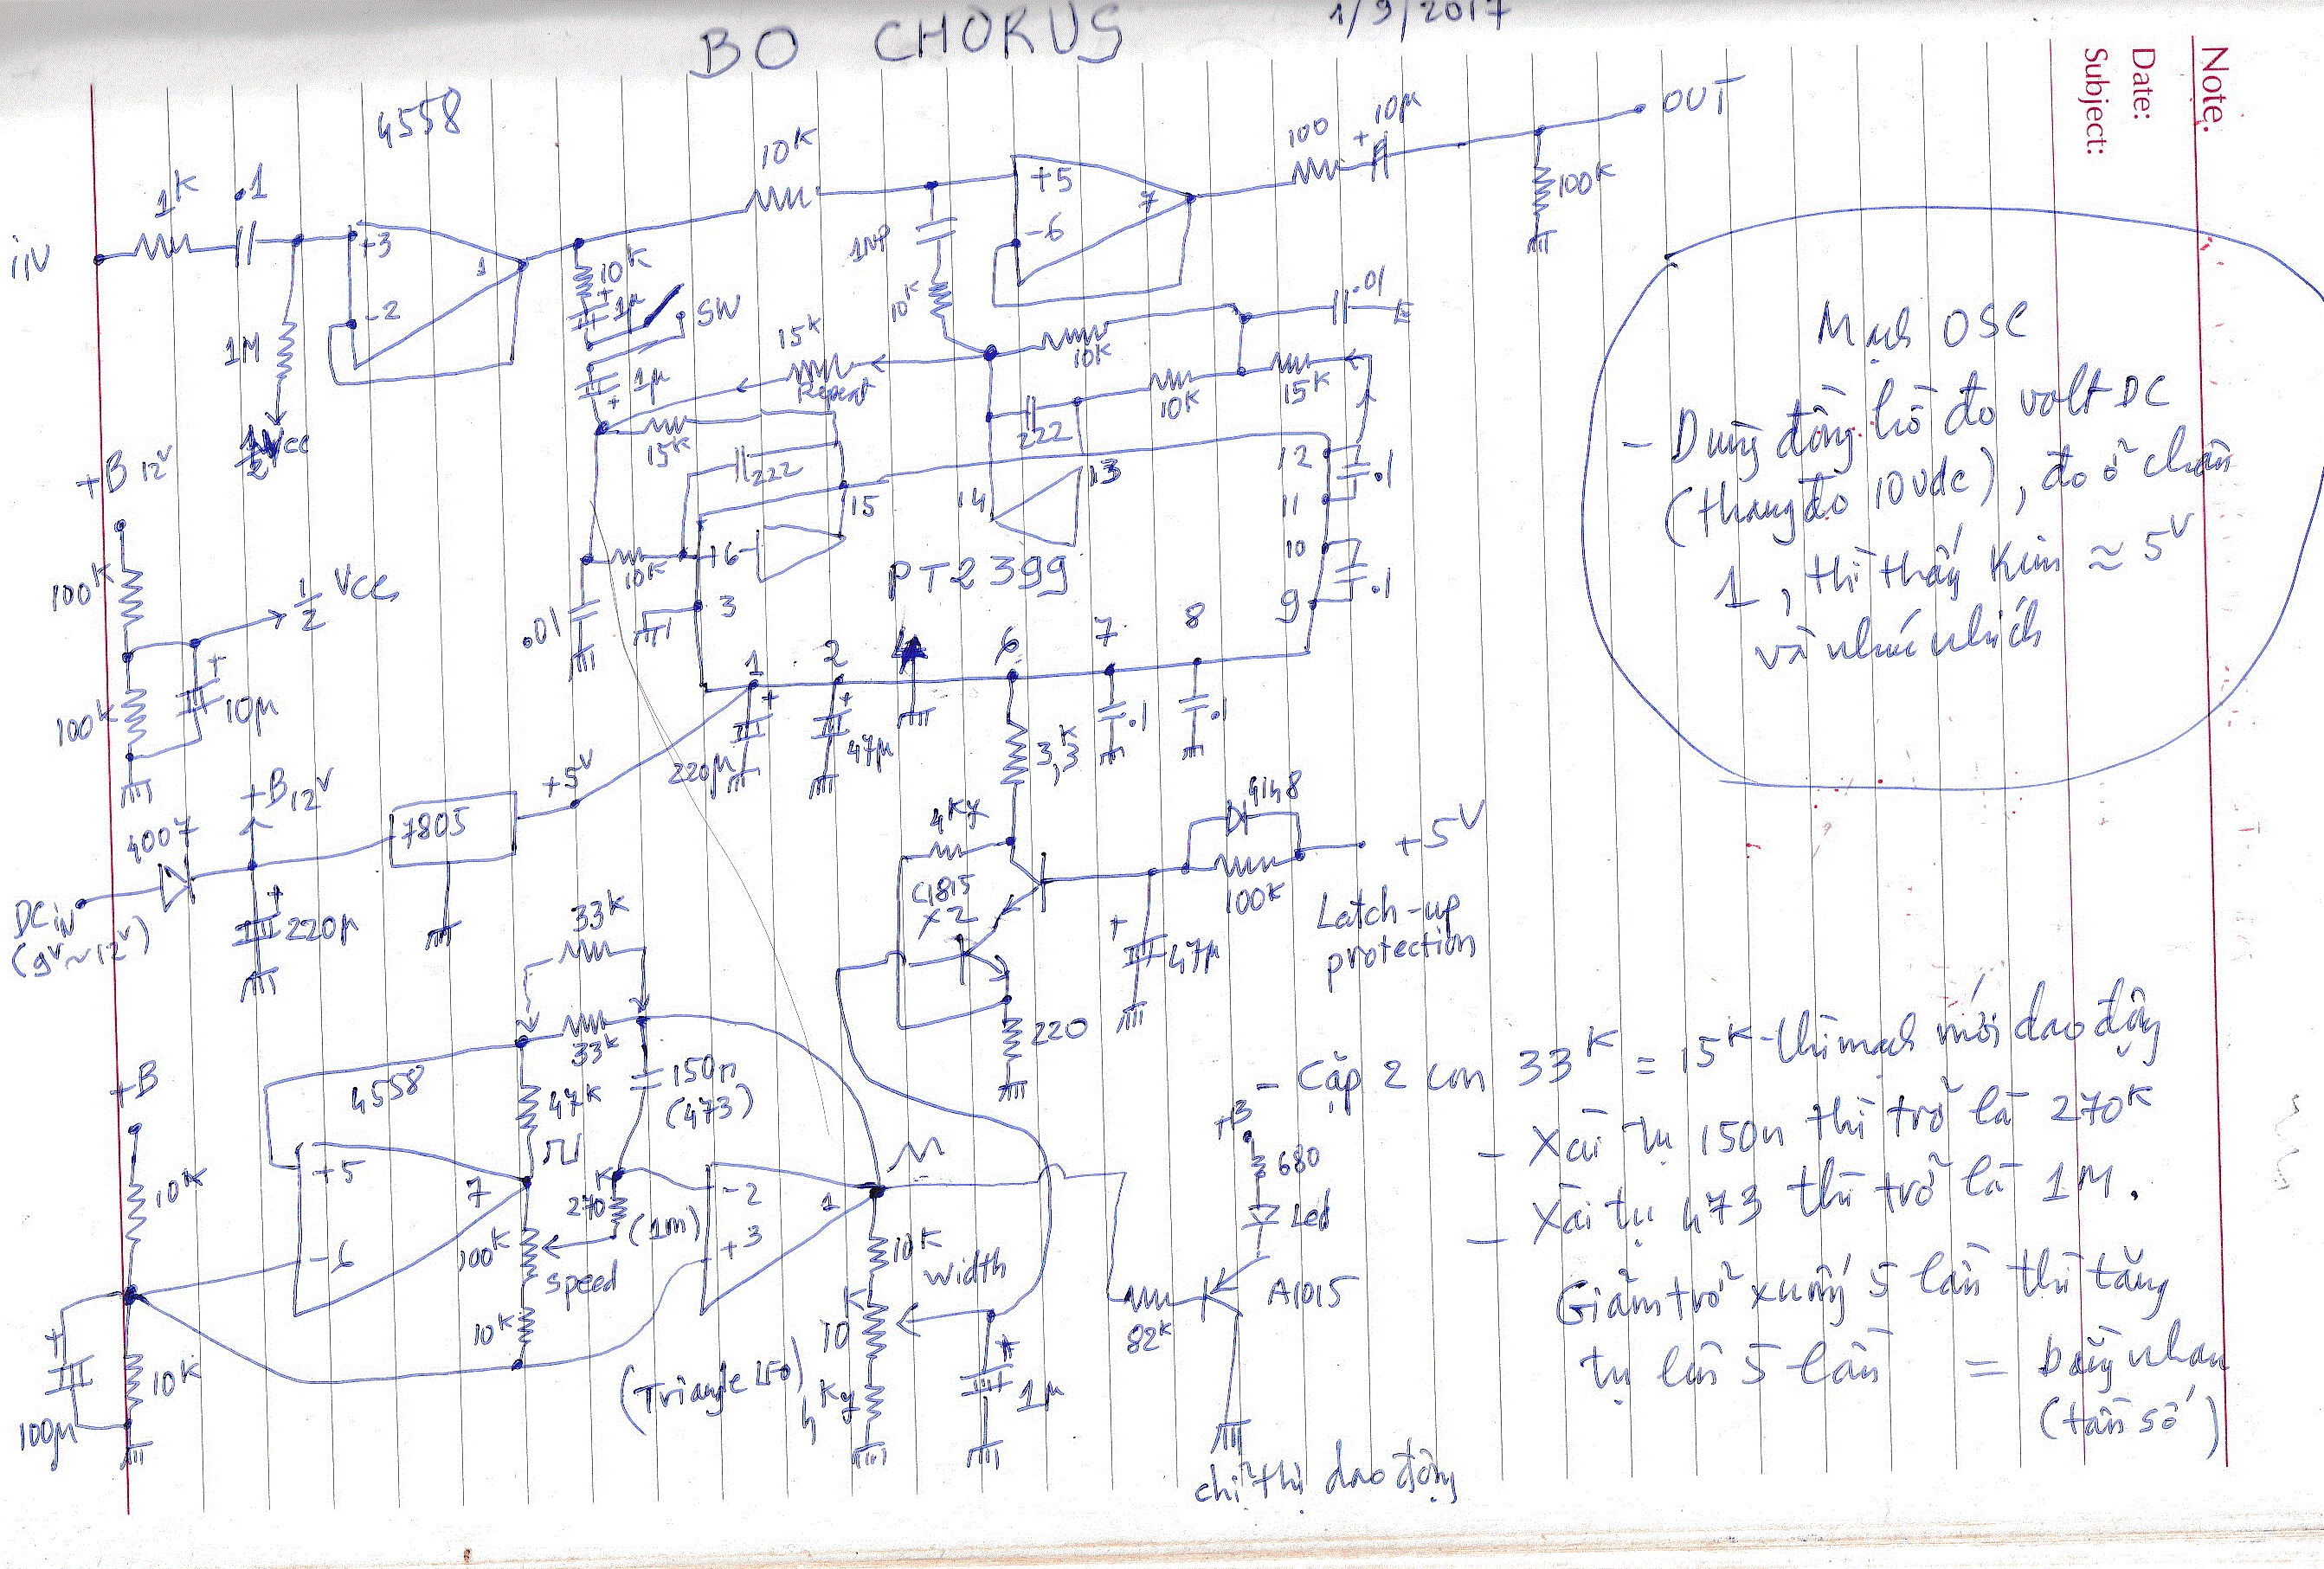 BO CHORUS 1/9/2017
Note.
Date:
Subject:
4558
iN
1K
.1
+3
-2
1
1M
1/2 Vcc
10K
10K
1µ
SW
1µ
+
15K
Repeat
15K
1µP
10K
+5
-6
7
100
+ 10µ
OUT
100K
10K
.01
10K
15K
222
222
15
14
13
12
11
.1
10
9
.1
10K
16
3
.01
PT2399
1
2
4
6
7
8
+
220µ
+
47µ
3,3K
.1
.1
+B 12V
100K
100K
1/2 Vcc
+
10µ
DC iN
(9V~12V)
4007
+B 12V
+
220µ
7805
+5V
4K7
C1815
x2
220
+
47µ
4148
100K
+5V
Latch-up
protection
33K
33K
47K
150n
(473)
4558
+B
10K
10K
+
100µ
+5
-6
7
100K
speed
10K
270K
(1M)
-2
+3
1
(Triangle LFO)
10K
Width
10K
4K7
+
1µ
82K
+B
680
Led
A1015
chỉ thị dao động
Mạch OSC
- Dùng đồng hồ đo volt DC
(thang đo 10Vdc), đo ở chân
1, thì thấy kim ≈ 5V
và nhúc nhích
- Cặp 2 con 33K = 15K thì mạch mới dao động
- Xài tụ 150n thì trở là 270K
- Xài tụ 473 thì trở là 1M.
Giảm trở xuống 5 lần thì tăng
tụ lên 5 lần = bằng nhau
(tần số)